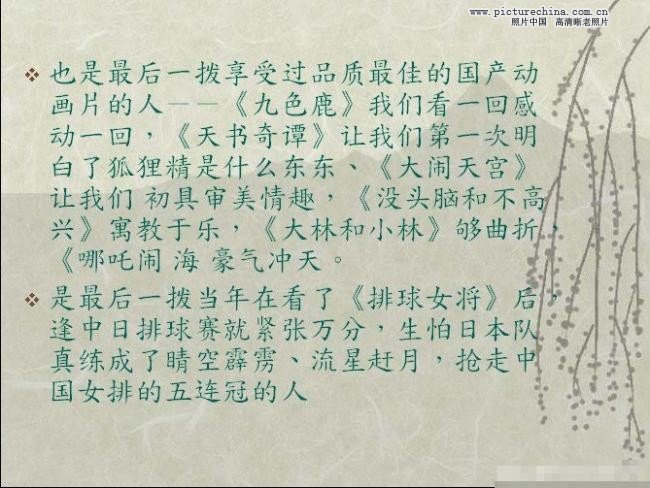 www.picturechina.com.cn
照片中国 高清晰老照片
也是最后一拨享受过品质最佳的国产动
画片的人——《九色鹿》我们看一回感
动一回，《天书奇谭》让我们第一次明
白了狐狸精是什么东东、《大闹天宫》
让我们 初具审美情趣，《没头脑和不高
兴》寓教于乐，《大林和小林》够曲折，
《哪吒闹 海 豪气冲天。
是最后一拨当年在看了《排球女将》后，
逢中日排球赛就紧张万分，生怕日本队
真练成了晴空霹雳、流星赶月，抢走中
国女排的五连冠的人